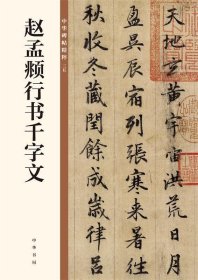 赵孟頫行书千字文
中华碑帖精粹
中华书局
天地玄黄宇宙洪荒日月
盈昃辰宿列張寒来暑往
秋收冬藏閏餘成歲律吕